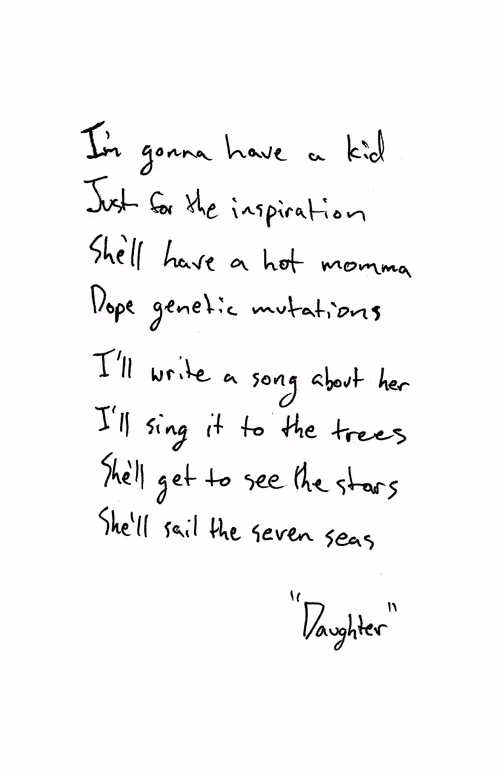 I'm gonna have a kid
Just for the inspiration
She'll have a hot momma
Dope genetic mutations
I'll write a song about her
I'll sing it to the trees
She'll get to see the stars
She'll sail the seven seas
"Daughter"